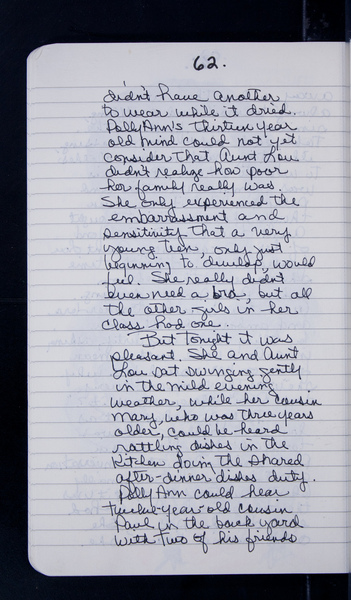 62.
didn't have another
to wear while it dried.
PollyAnn's thirteen year
old mind could not yet
consider that Aunt Lou
didn't realize how poor
her family really was.
She only experienced the
embarrassment and
sensitivity that a very
young teen, only just
beginning to develop, would
feel. She really didn't
even need a bra, but all
the other girls in her
class had one.
But tonight it was
pleasant. She and Aunt
Lou sat swinging gently
in the mild evening
weather, while her cousin
Mary, who was three years
older, could be heard
rattling dishes in the
kitchen doing the shared
after-dinner dishes duty.
PollyAnn could hear
twelve-year-old cousin
Paul in the back yard
with two of his friends